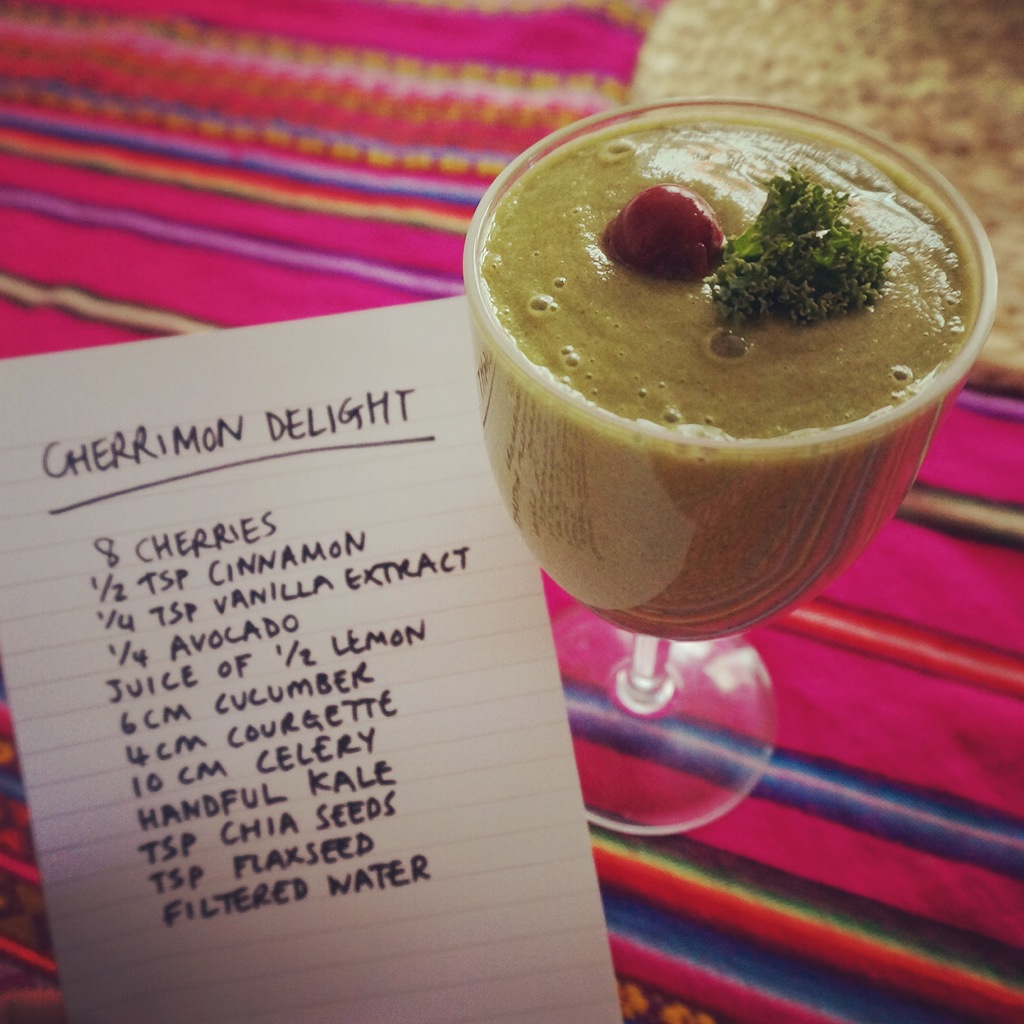 CHERRIMON DELIGHT
8 CHERRIES
1/2 TSP CINNAMON
1/4 TSP VANILLA EXTRACT
1/4 AVOCADO
JUICE OF 1/2 LEMON
6CM CUCUMBER
4CM COURGETTE
10 CM CELERY
HANDFUL KALE
TSP CHIA SEEDS
TSP FLAXSEED
FILTERED WATER